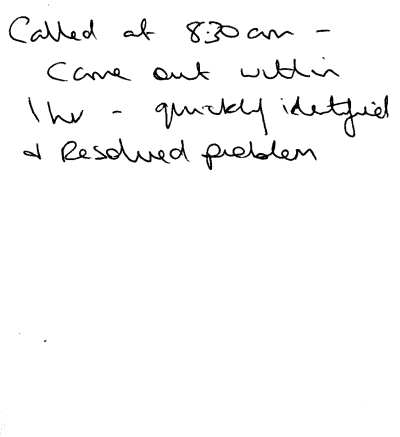 Called at 8:30am -
Came out within
1hr - quickly identified
& Resolved problem